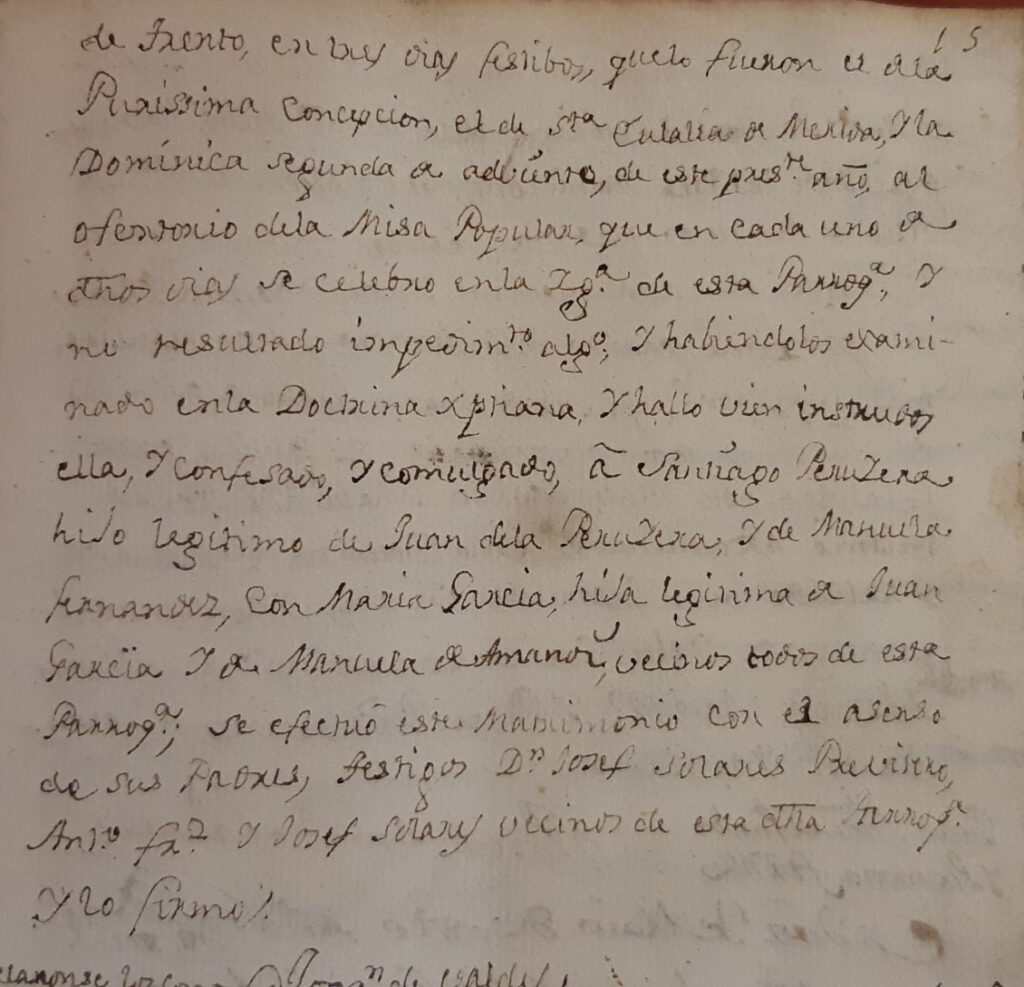 15
de Trento, en tres dias festibos, quelo fueron el dela
Purissima Concepcion, el de Sta Eulalia de Merida, Y la
Dominica segunda de adviento, de este preste año, al
ofertorio dela Misa Popular, que en cada uno de
dhos dias se celebro en la Yga de esta Parroqa, Y
no resultado impedimto algo, Y habiendolos exami-
nado enla Doctrina Xptiana, Y hallo vien instruidos
ella, Y confesado, Y comulgado, â Santiago Peruyera
hijo legitimo de Juan dela Peruyera, Y de Manuela
fernandez, Con Maria Garcia, hija legitima de Juan
Garcia Y de Manuela de Amandi, vecinos todos de esta
Parroqa; se efectuó este Matrimonio con el asenso
de sus Padres, testigos Dn Josef Solares Presvitero,
Anto frz Y Josef Solares vecinos de esta dha Parroqa
Y lo firmo
de Valdes